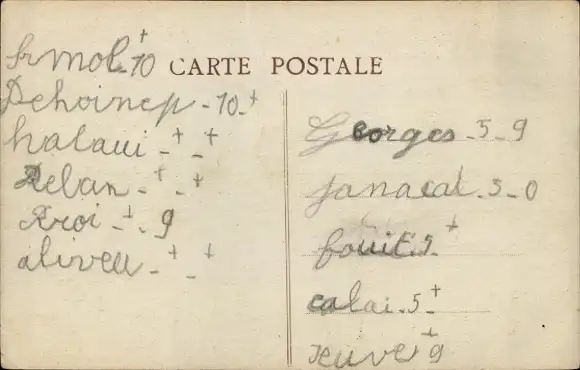 CARTE POSTALE
Armol - 10 +
Dehoinep - 10 - +
halaui - + - +
Deban - + - +
Rroi - + - 9
aliveu - + - +
Georges - 5 - 9
Janacal - 5 - 0
fouit 5 - +
calai - 5 - +
Jeuve + 9